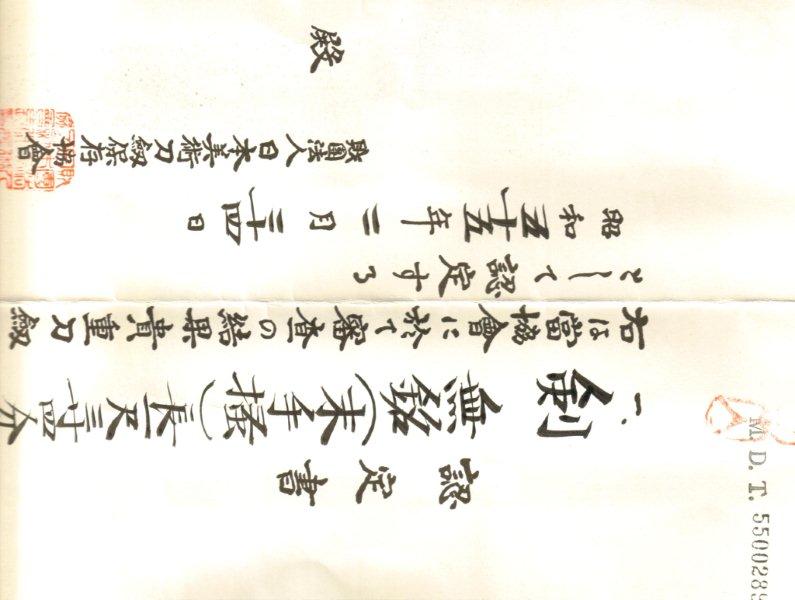 認定書
一、剣 無銘(末手掻)長一尺三寸四分
右は當協會に於て審査の結果貴重刀剱
として認定する
昭和五十五年二月二十四日
財團法人日本美術刀剱保存協會
殿
M. D. T. 5500289